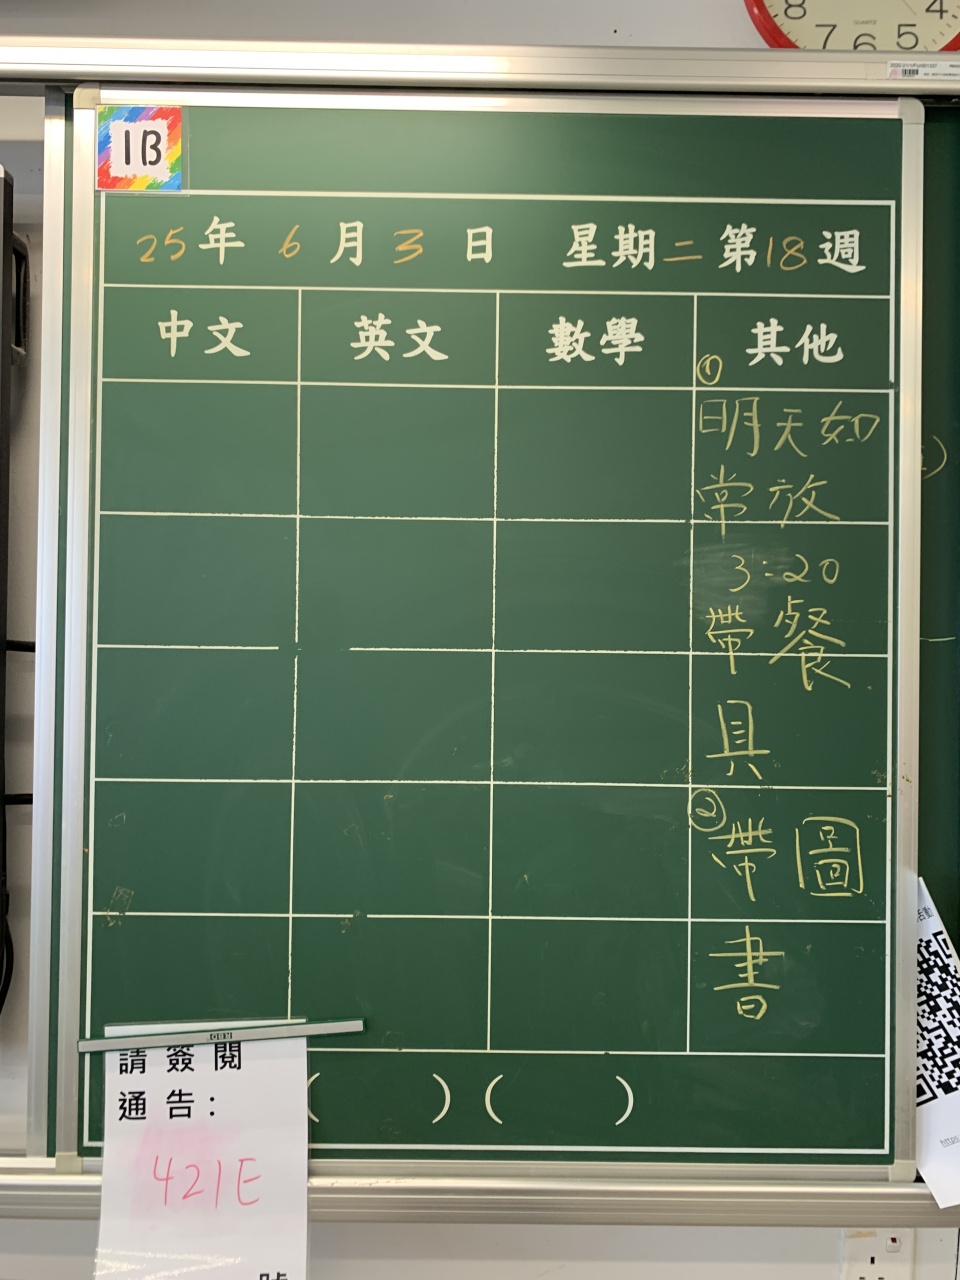 8 7 6 5 4
QUARTZ
1B
25年 6月3日 星期二第18週
中文 英文 數學 其他
①
明天如
常放
3:20
帶餐
具
②帶圖
書
( ) ( )
請簽閱
通告:
421E
活動
https